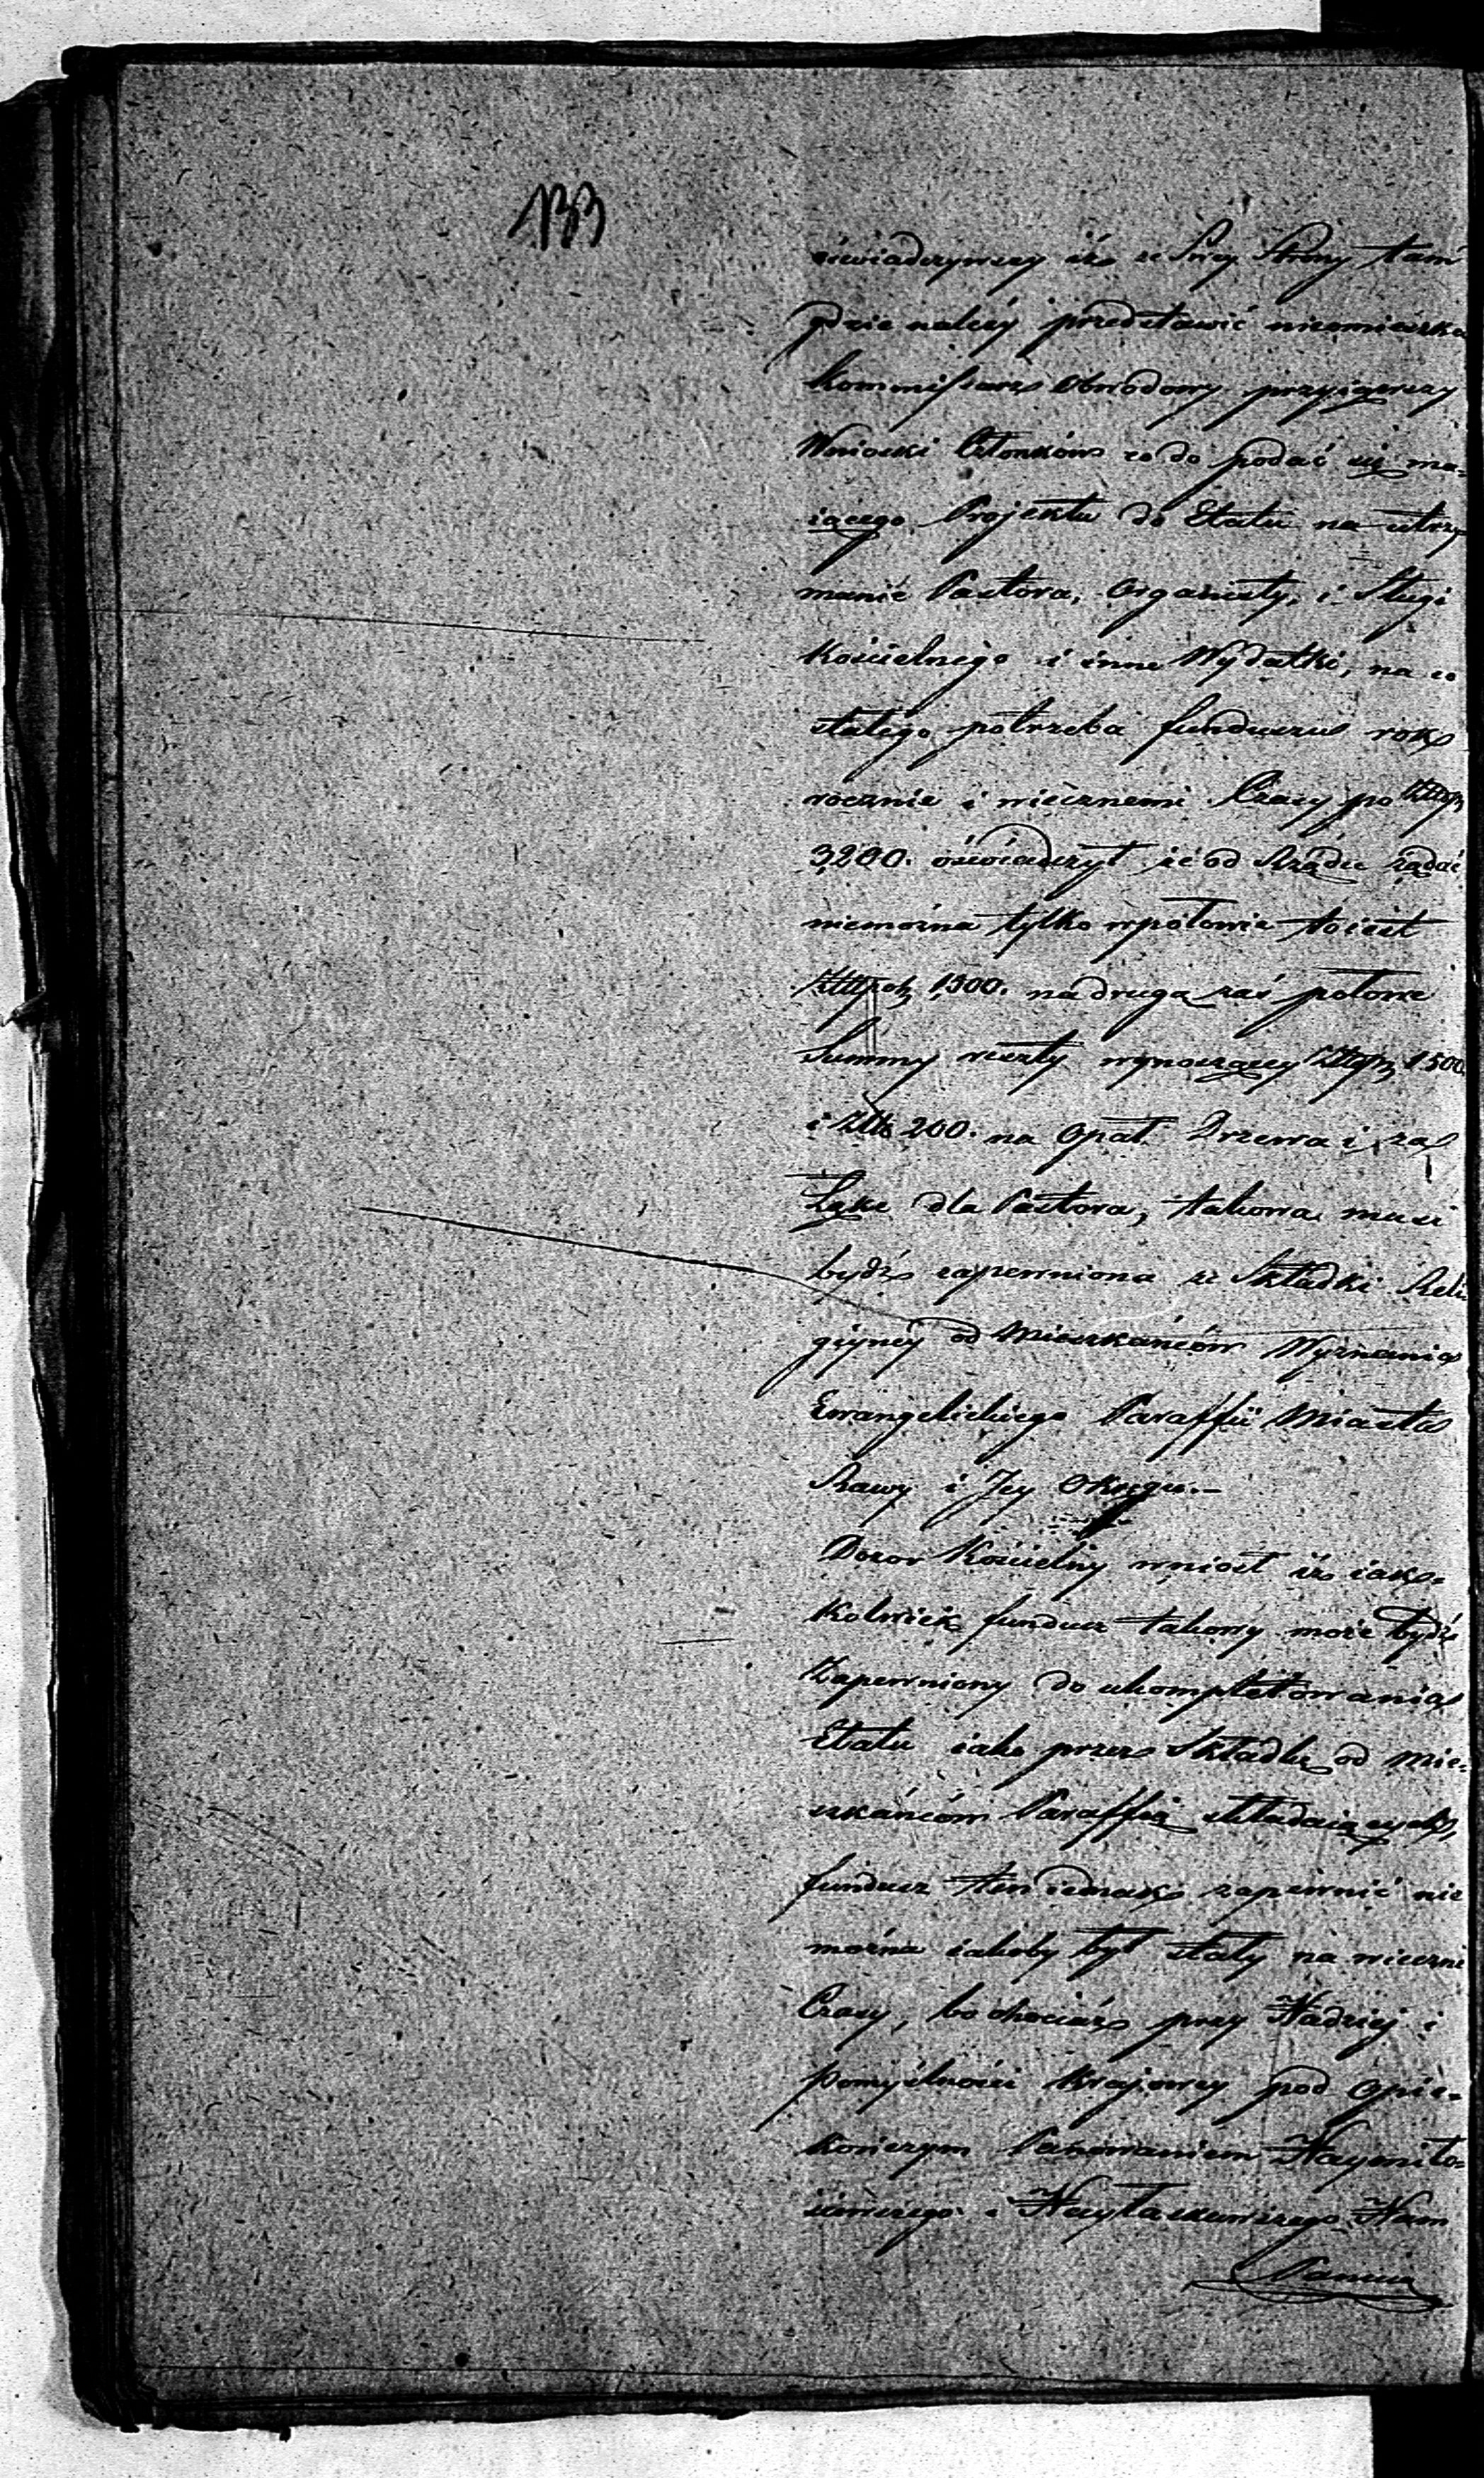 133
oświadczywszy iż ze Swey Strony tam
gdzie należy przedstawić nieomieszka
Kommissarz Obwodowy przyiąwszy
Wnioski Członków co do podać się ma-
iącego Projektu do Etatu na utrzy
manie Pastora, Organisty, i Sługi
Kościelnego i inne Wydatki, na co
stałego potrzeba funduszu rok
rocznie i wiecznemi Czasy po Złłp.
3200. oświadczył że od Rządu żądać
niemożna tylko wpołowie toiest
Złłpol. 1500. na drugą zaś połowe
Summy reszty wynoszącey Złłp. 1500.
i Złł. 200. na Opał Drzewa i za
Łąke dla Pastora, takowa musi
bydź zapewniona ze Składki Reli
giyney od Mieszkańców Wyznania
Ewangelickiego Paraffii Miasta
Rawy i Jey Okręgu.-
Dozor Kościelny wniosł iż iak-
kolwiek fundusz takowy może bydź
Zapewniony do ukompletowania
Etatu iako przez Składkę od Mie-
szkańców Paraffią składaiących,
fundusz ten iednak zapewnić nie
można iakoby był stały na wieczne
Czasy, bo chociaż przy Nadziej i
pomyślności Krajowey pod Opie-
kuńczym Panowaniem Naymiło-
ściwszego i Nayłaskawszego Nam